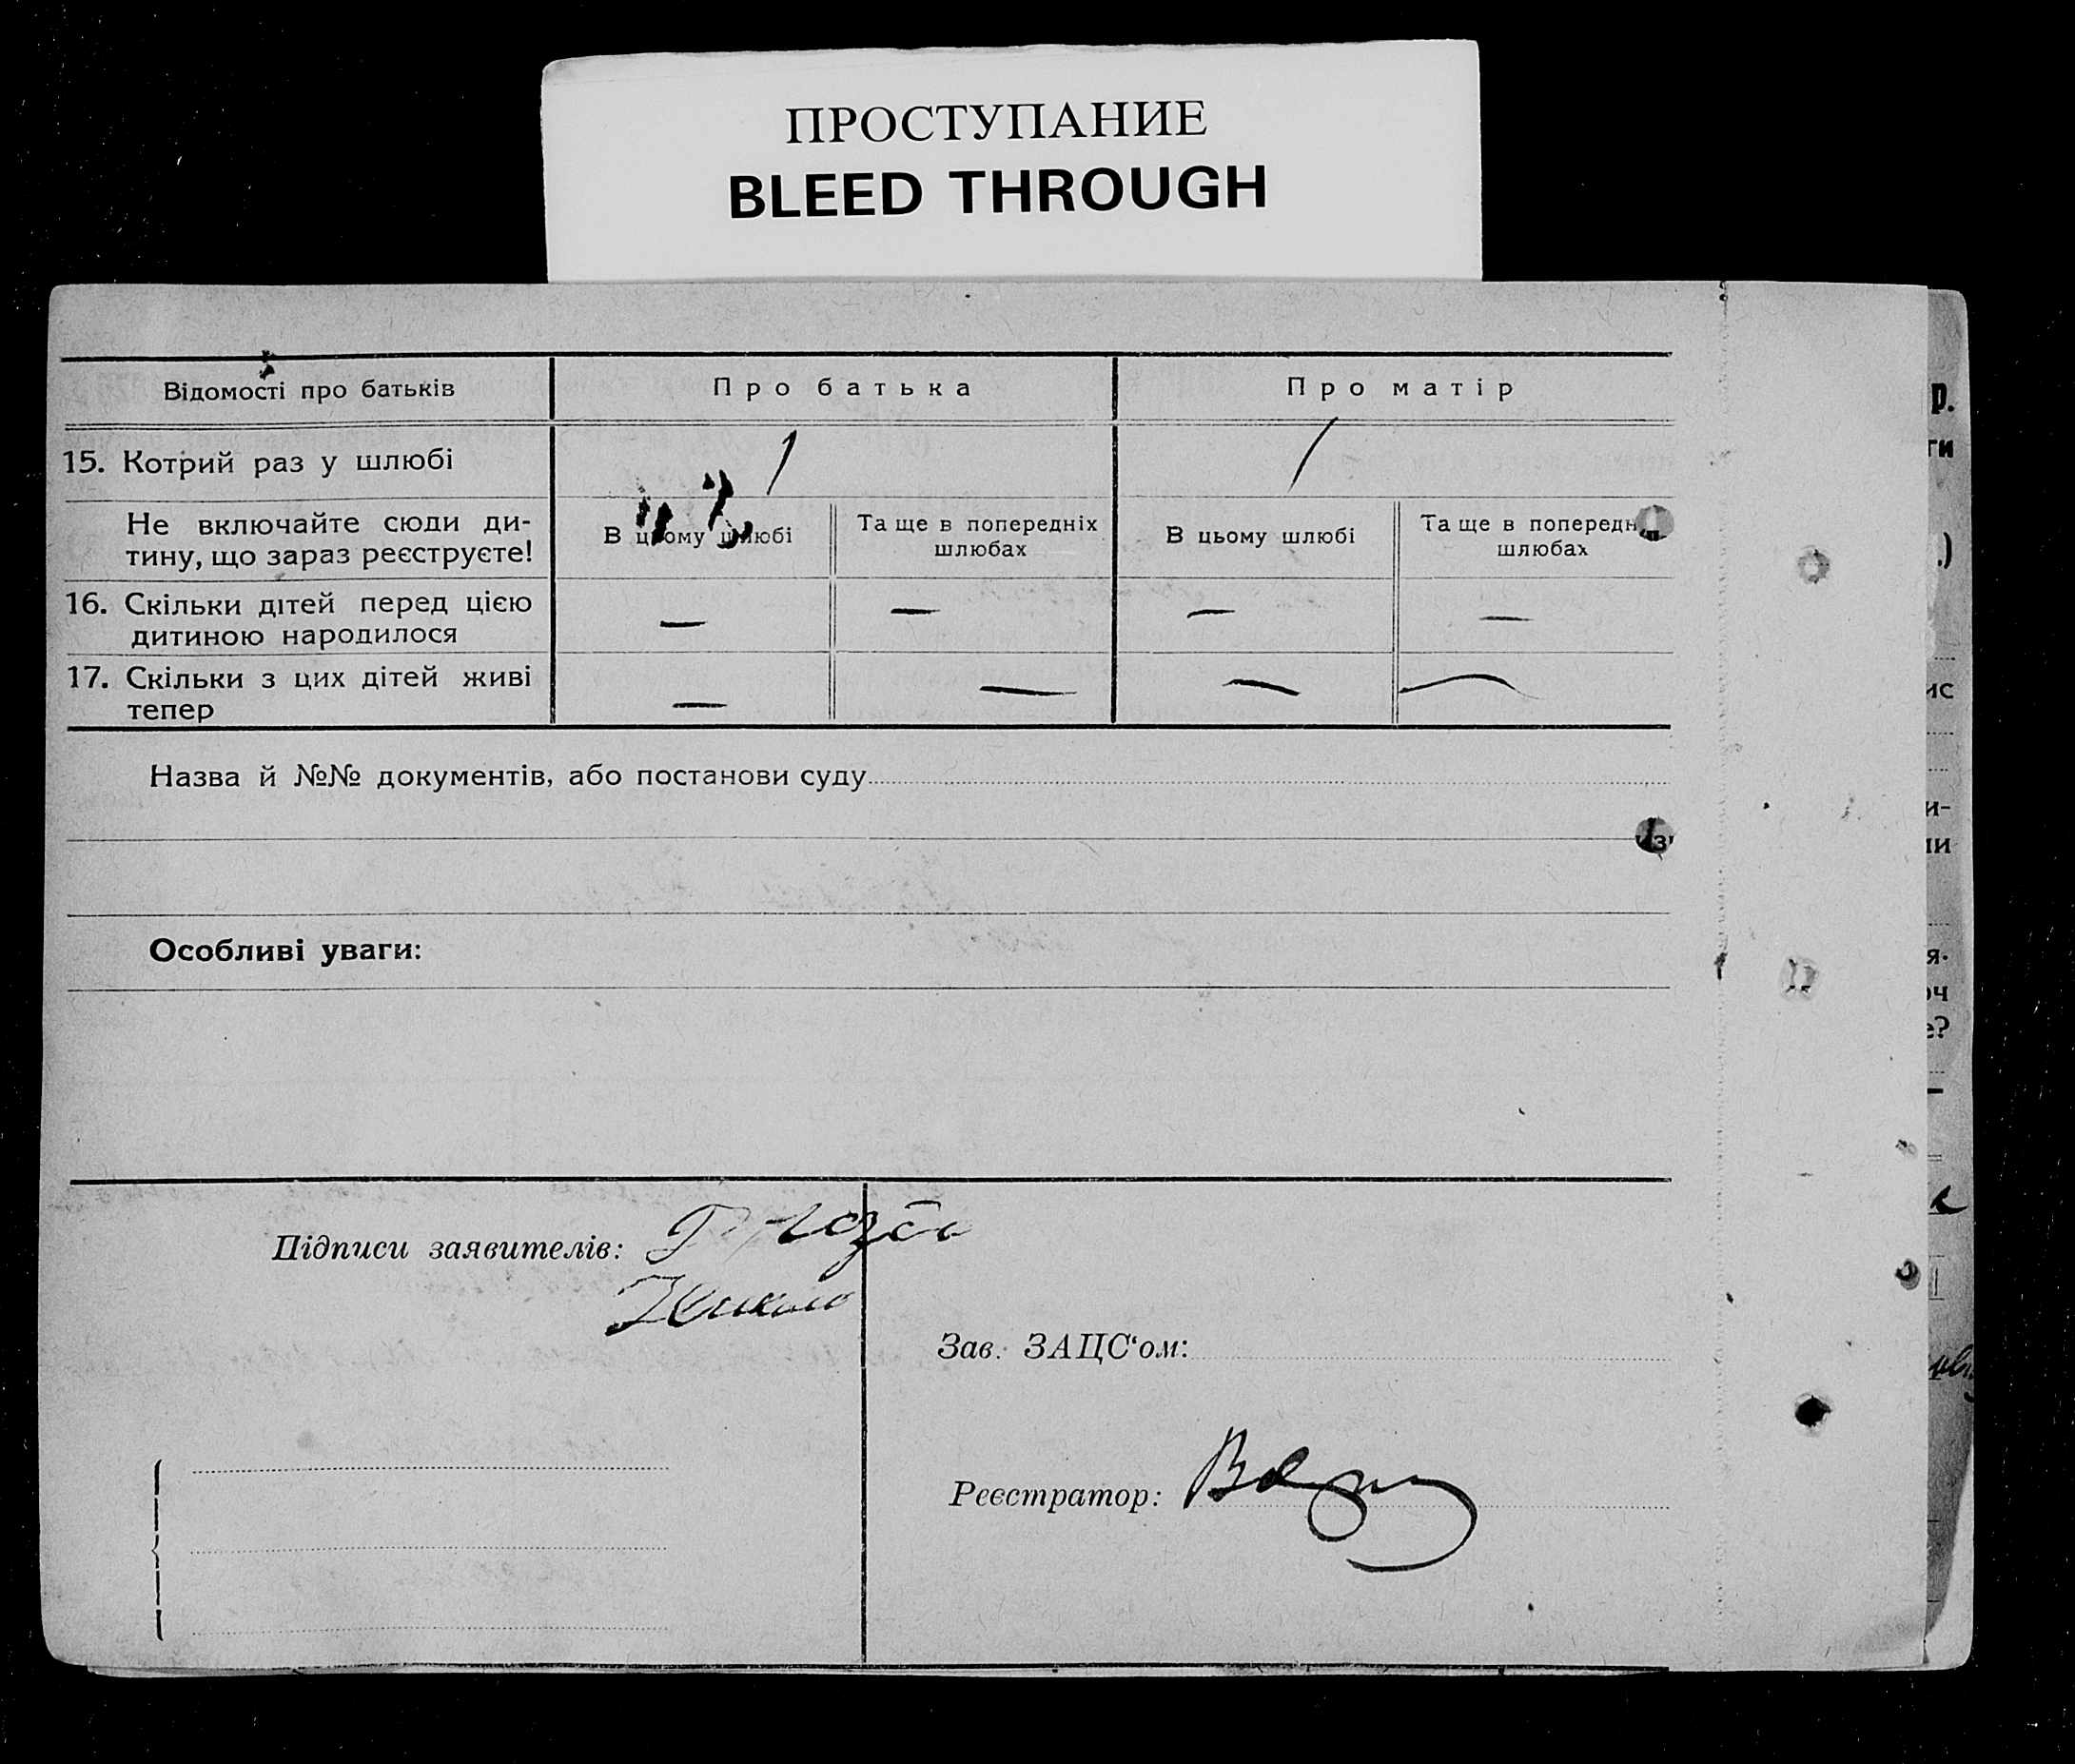 ПРОСТУПАНИЕ
BLEED THROUGH
Відомості про батьків
Про батька
Про матір
15. Котрий раз у шлюбі
1
1
Не включайте сюди ди-
тину, що зараз реєструєте!
В цьому шлюбі
Та ще в попередніх
шлюбах
В цьому шлюбі
Та ще в попередн
шлюбах
16. Скільки дітей перед цією
дитиною народилося
—
—
—
—
17. Скільки з цих дітей живі
тепер
—
—
—
—
Назва й №№ документів, або постанови суду
Особливі уваги:
Підписи заявителів:
Зав. ЗАЦС‘ом:
Реєстратор: